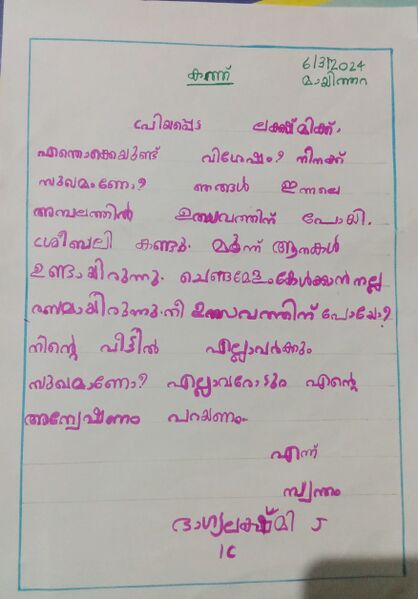 കത്ത്
6/3/2024
മായിത്തറ
പ്രിയപ്പെട്ട ലക്ഷ്മിക്ക്,
എന്തൊക്കെയുണ്ട് വിശേഷം? നിനക്ക്
സുഖമാണോ? ഞങ്ങൾ ഇന്നലെ
അമ്പലത്തിൽ ഉത്സവത്തിന് പോയി.
ശീബലി കണ്ടു. മൂന്ന് ആനകൾ
ഉണ്ടായിരുന്നു. ചെണ്ടമേളംകേൾക്കാൻ നല്ല
രസമായിരുന്നു. നീ ഉത്സവത്തിന് പോയോ?
നിന്റെ വീട്ടിൽ എല്ലാവർക്കും
സുഖമാണോ? എല്ലാവരോടും എന്റെ
അന്വേഷണം പറയണം.
എന്ന്
സ്വന്തം
ഭാഗ്യലക്ഷ്മി J
1C